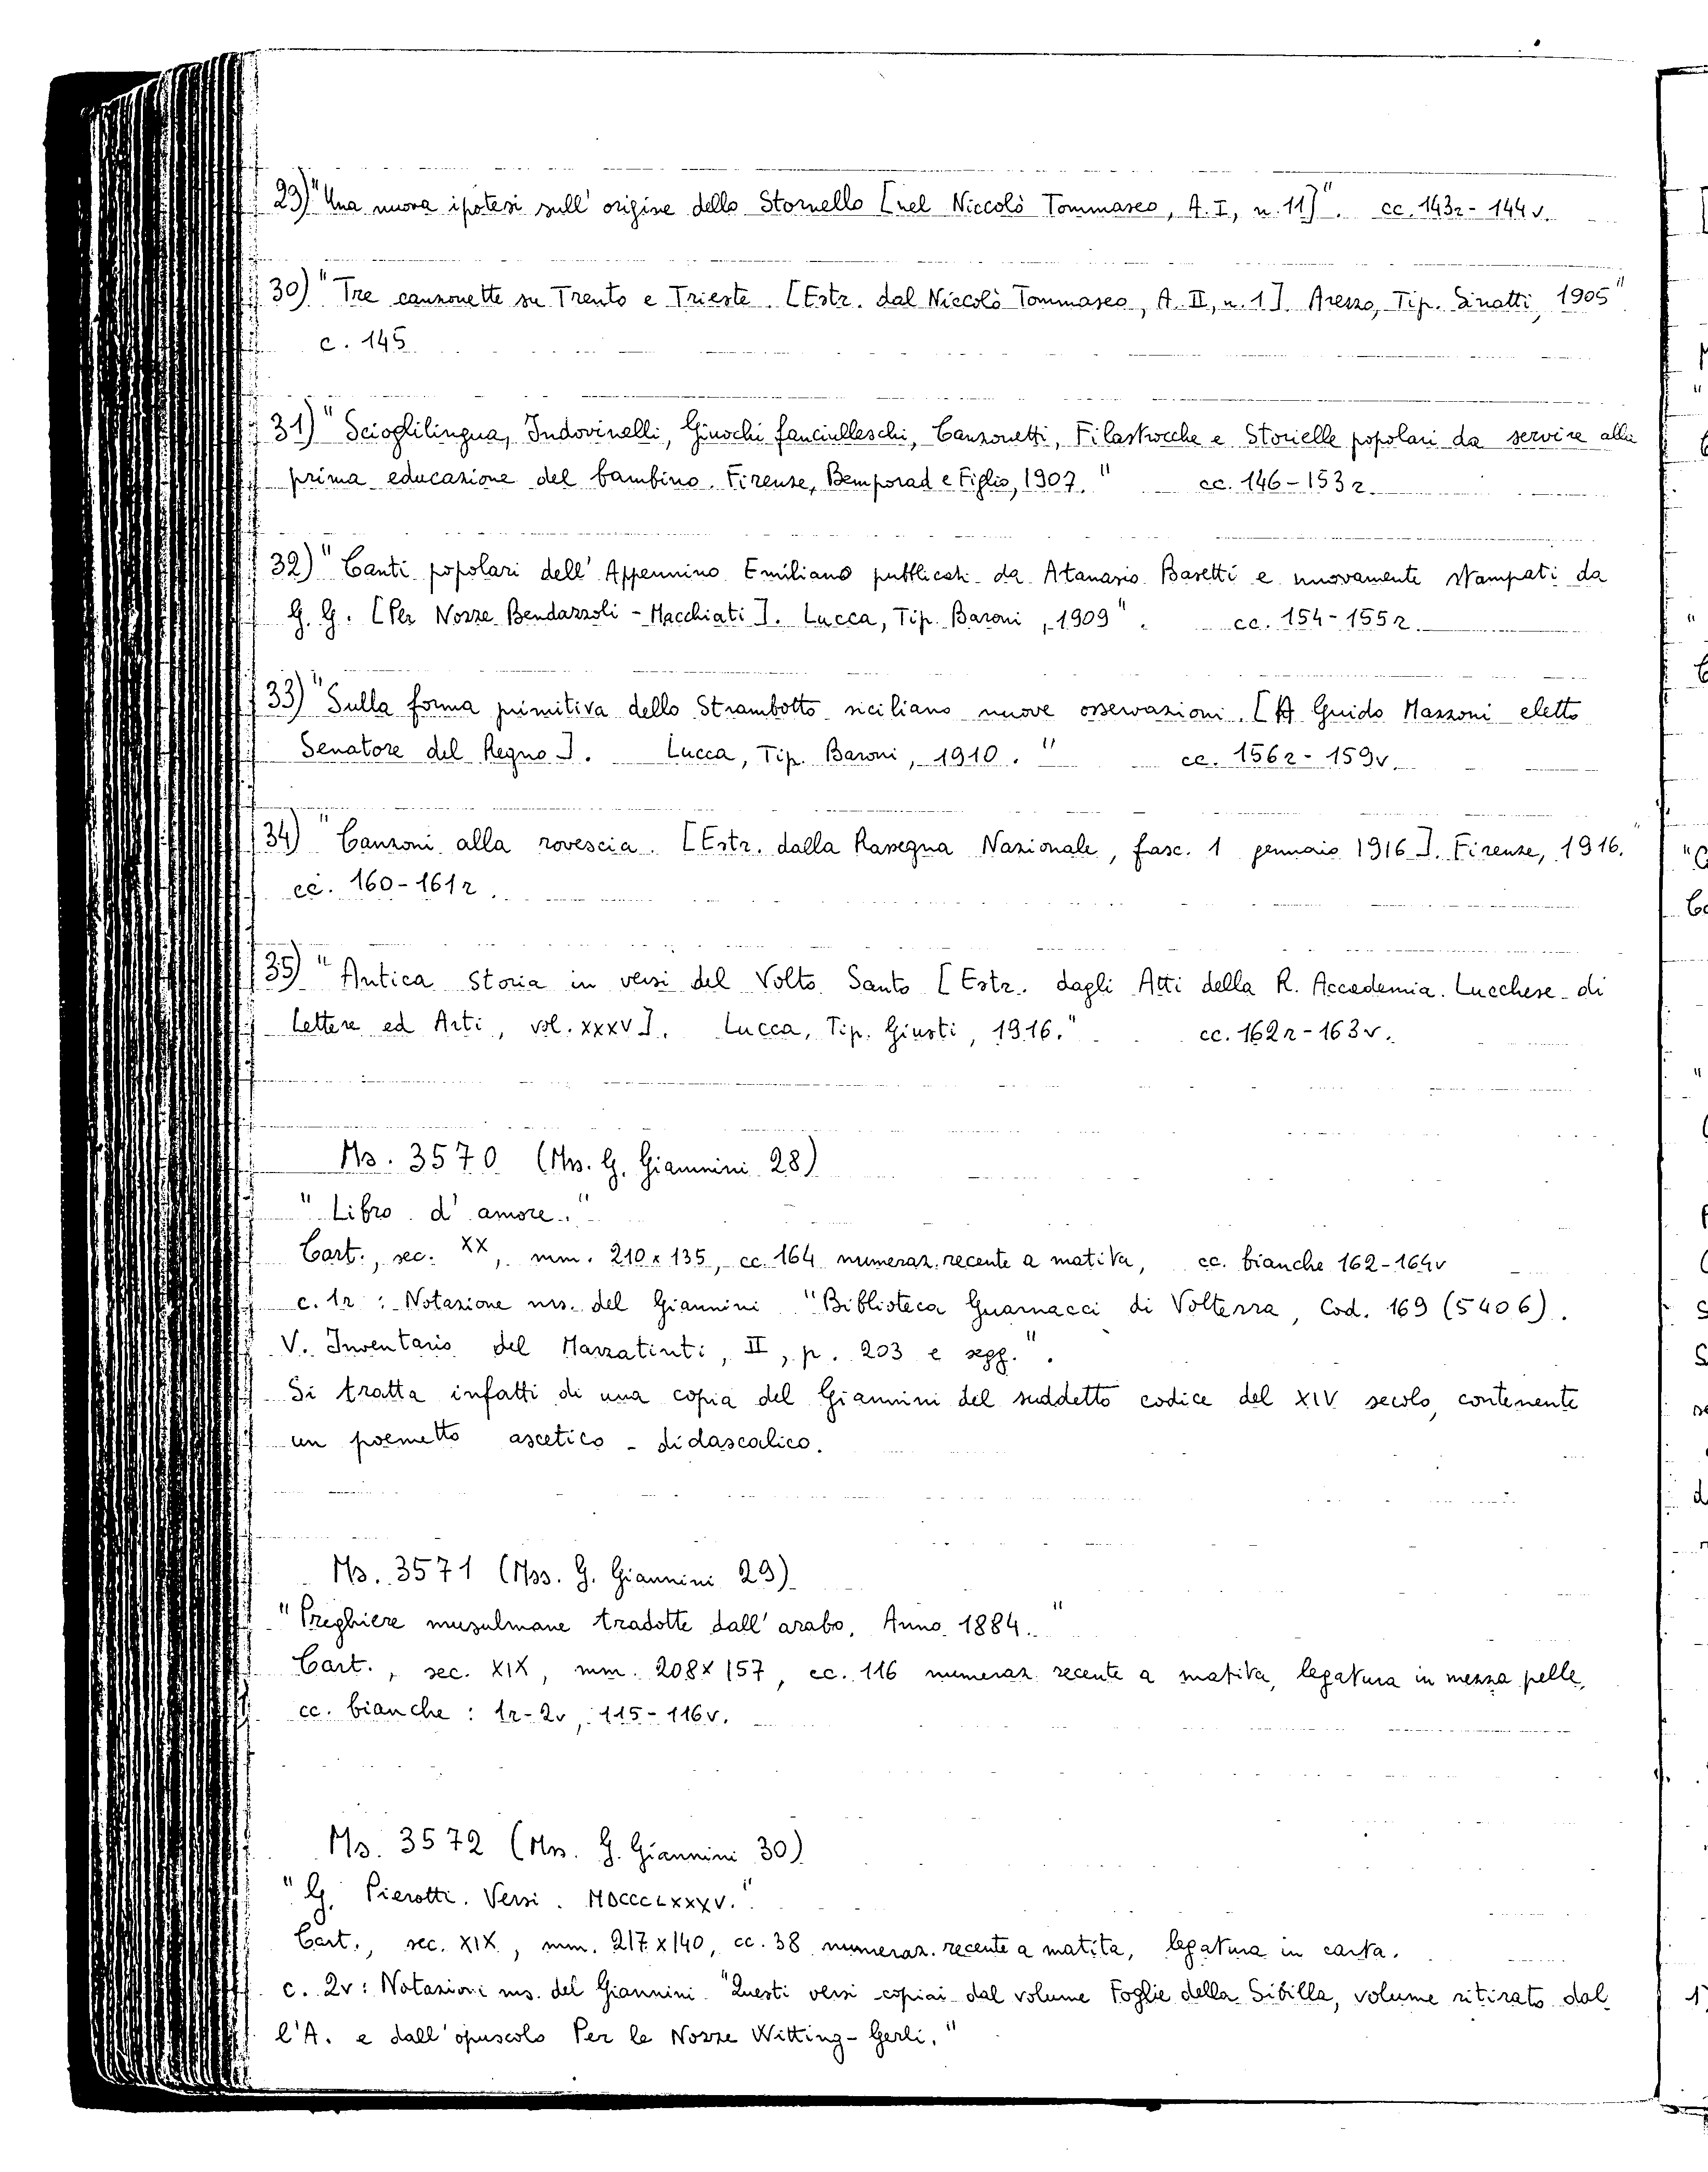 29) "Una nuova ipotesi sull' origine dello Stornello [nel Niccolò Tommaseo, A. I, n. 11]". cc. 143r - 144v.
30) "Tre canzonette su Trento e Trieste. [Estr. dal Niccolò Tommaseo, A. II, n. 1]. Arezzo, Tip. Sinatti, 1905"
c. 145
31) "Scioglilingua, Indovinelli, Giuochi fanciulleschi, Canzonetti, Filastrocche e Storielle popolari da servire alla
prima educazione del bambino. Firenze, Bemporad e Figlio, 1907." cc. 146 - 153r.
32) "Canti popolari dell' Appennino Emiliano pubblicati da Atanasio Basetti e nuovamente stampati da
G. G. [Per Nozze Bendazzoli - Macchiati]. Lucca, Tip. Baroni, 1909". cc. 154 - 155r.
33) "Sulla forma primitiva dello Strambotto siciliano nuove osservazioni. [A Guido Mazzoni eletto
Senatore del Regno]. Lucca, Tip. Baroni, 1910." cc. 156r - 159v.
34) "Canzoni alla rovescia. [Estr. dalla Rassegna Nazionale, fasc. 1 gennaio 1916]. Firenze, 1916."
cc. 160 - 161r.
35) "Antica Storia in versi del Volto Santo [Estr. dagli Atti della R. Accademia Lucchese di
Lettere ed Arti, vol. XXXV]. Lucca, Tip. Giusti, 1916." cc. 162r - 163v.
Ms. 3570 (Mss. G. Giannini 28)
"Libro d' amore."
Cart., sec. XX, mm. 210 x 135, cc. 164 numeraz. recente a matita, cc. bianche 162-164v
c. 1r : Notazione ms. del Giannini "Biblioteca Guarnacci di Volterra, Cod. 169 (5406).
V. Inventario del Mazzatinti, II, p. 203 e segg.".
Si tratta infatti di una copia del Giannini del suddetto codice del XIV secolo, contenente
un poemetto ascetico - didascalico.
Ms. 3571 (Mss. G. Giannini 29)
"Preghiere musulmane tradotte dall' arabo. Anno 1884."
Cart., sec. XIX, mm. 208 x 157, cc. 116 numeraz. recente a matita, legatura in mezza pelle,
cc. bianche : 1r-2v, 115-116v.
Ms. 3572 (Mss. G. Giannini 30)
"G. Pierotti. Versi. MDCCCLXXXV."
Cart., sec. XIX, mm. 217 x 140, cc. 38 numeraz. recente a matita, legatura in carta.
c. 2v : Notazioni ms. del Giannini "Questi versi copiai dal volume Foglie della Sibilla, volume ritirato dal
l'A. e dall'opuscolo Per le Nozze Witting - Gerli."